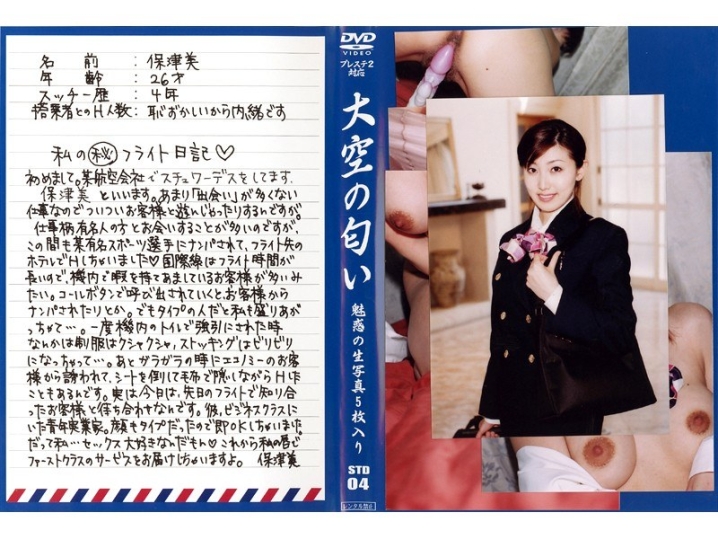 名前：保津美
年齢：26才
スッチー歴：4年
搭乗者とのH人数：恥ずかしいから内緒です
私の㊙フライト日記♡
初めまして。某航空会社でスチュワーデスをしてます。
保津美といいます。あまり「出会い」が多くない
仕事なのでついついお客様と遊んじゃったりするんですが。
仕事柄有名人の方とお会いすることが多いのですが、
この間も某有名スポーツ選手にナンパされて、フライト先の
ホテルでHしちゃいました♡国際線はフライト時間が
長いので、機内で暇を持てあましているお客様が多いみ
たい。コールボタンで呼び出されていくと、お客様から
ナンパされたりとか。でもタイプの人だと私も盛りあが
っちゃて…。一度機内のトイレで強引にされた時
なんかは制服はクシャクシャ,ストッキングはビリビリ
になっちゃって…。あとガラガラの時にエコノミーのお客
様から誘われて、シートを倒して毛布で隠しながらHした
こともあるんです。実は今日は、先日のフライトで知り合
ったお客様と待ち合わせなんです。彼,ビジネスクラスに
いた青年実業家。顔もタイプだったので即OKしちゃいました。
だって私…セックス大好きなんだもん♡これから私の唇で
ファーストクラスのサービスをお届けしちゃいますよ。 保津美
DVD
VIDEO
プレステ2
対応
大空の匂い
魅惑の生写真5枚入り
STD
04
レンタル禁止